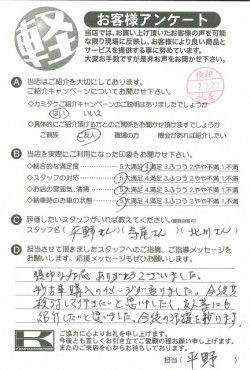 軽
お客様アンケート
当店では、お買い上げ頂いたお客様の声を可能
な限り現場に反映し、お客様により良い商品と
サービスを提供する事に努めています。
大変お手数ですが是非お声をお聞かせ下さい。
検印
社長
A 当店はご紹介を大切にしております。
ご紹介キャンペーンについてお聞かせ下さい。
◇カミタケご紹介キャンペーンのご説明はありましたでしょうか
はい いいえ
◇具体的にご紹介頂ける方とのご関係をお聞かせ頂けますでしょうか
ご親族 ご友人 職場の方 機会があれば紹介したい
B 当店を実際にご利用になった印象をお聞かせ下さい。
◇総合的な満足度 5.大満足 4.満足 3.ふつう 2.やや不満 1.不満
◇スタッフの対応 5.大満足 4.満足 3.ふつう 2.やや不満 1.不満
◇お店の雰囲気、清掃 5.大満足 4.満足 3.ふつう 2.やや不満 1.不満
◇納車時のお車の状態 5.大満足 4.満足 3.ふつう 2.やや不満 1.不満
C 評価したいスタッフがいれば教えてください。(複数回答可)
スタッフ名( 平野さん )( さん )( 北川さん )
D 担当させて頂きましたスタッフへのご指摘、ご指導メッセージを
お願いします。応援メッセージもぜひお願いします。
親切な対応 ありがとうございました。
中古車購入のイメージが変りました。今後共
宜しくして行きたいと思いましたし、友人等にも
紹介したいと思いました。今後の活躍を祈ります。
ご協力に心よりお礼を申し上げます。
今後とも宜しくお引き立てご愛顧の程お願い申し上げます。
またのご来店を心からお待ちしております。
担当( 平野 )